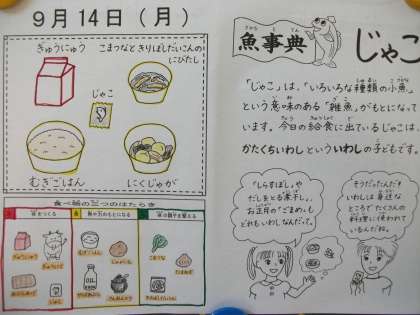 9月14日(月)
ぎゅうにゅう
こまつなときりぼしだいこんの
にびたし
じゃこ
むぎごはん
にくじゃが
食べ物の三つのはたらき
ぎゅうにゅう
じゃこ
むぎごはん
じゃがいも
こまつな
たまねぎ
魚事典
じゃこ
「じゃこ」は、「いろいろな種類の小魚」
という意味のある「雑魚」がもとになって
います。今日の給食に出ているじゃこは、
かたくちいわしといういわしの子どもです。
「しらすぼし」や
だしをとる「煮干し」、
お正月の「ごまめ」も
どれもいわしなんだって。
そうだったんだ!
いわしは身近な
ところでたくさんの
料理に使われて
いるんだね。